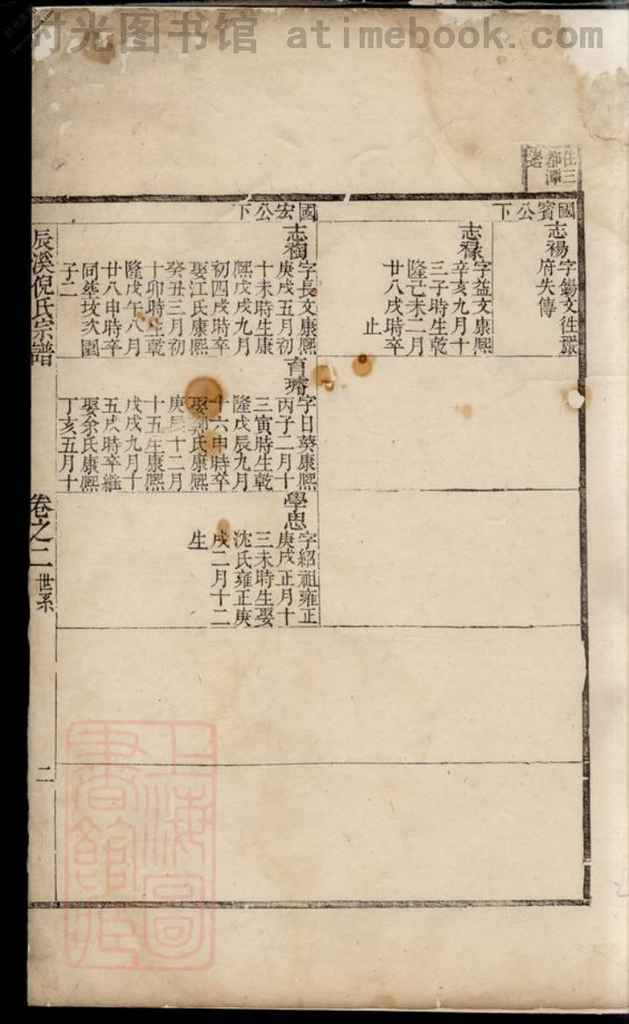 时光图书馆 atimebook.com
住三
都潭
國賓公下
志禓
字錫文往
府失傳
志祿
字益文康熙
辛亥九月十
三子時生乾
隆己未二月
廿八戌時卒
止
國宏公下
字長文康熙
庚戌五月初
十未時生康
熙戊戌九月
初四戌時卒
娶江氏康熙
癸丑三月初
十卯時生乾
隆戊午八月
廿八申時卒
同塟坟攻圍
子二
育琦
字日葵康熙
丙子二月十
三寅時生乾
隆戊辰九月
十六申時卒
娶鄭氏康熙
庚辰十二月
十五生康熙
戊戌九月十
五戌時卒繼
娶余氏康熙
丁亥五月十
學思
字紹祖雍正
庚戌正月十
三未時生娶
沈氏雍正庚
戌二月十二
生
辰溪倪氏宗譜
卷之二
世系
二
上海圖
書館藏